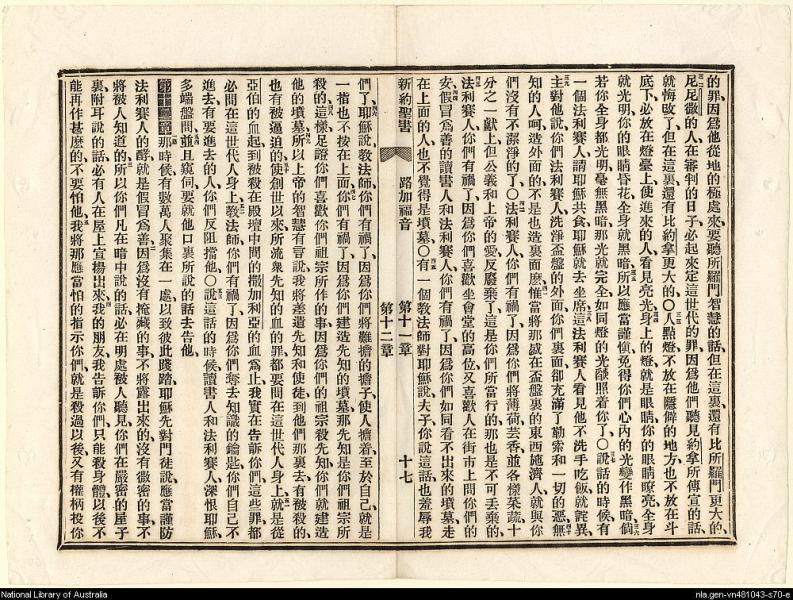 的罪因爲他從地的極處來要聽所羅門智慧的話但在這裏還有比所羅門更大的、
尼尼微的人在審判的日子必起來定這世代的罪因爲他們聽見約拿所傳宣的話、
就悔改了、但在這裏還有比約拿更大的、〇人點燈不放在隱僻的地方也不放在斗
底下必放在燈臺上使進來的人、看見亮光身上的燈就是眼睛、你的眼睛瞭亮全身
就光明你的眼睛昏花全身就黑暗所以應當謹愼免得你們心內的光變作黑暗倘
若你全身都光明毫無黑暗那光就完全如同燈的光燄照着你了〇說話的時候有
一個法利賽人請耶穌共食耶穌就去坐席這法利賽人看見他不洗手吃飯就詫異、
主對他說你們法利賽人洗淨盃盤的外面你們裏面却充滿了勒索和一切的惡無
知的人呵造外面的不是也造裏面麽惟當將那盛在盃盤裏的東西施濟人就與你
們沒有不潔淨的了〇法利賽人你們有禍了因爲你們將薄荷芸香並各樣菜蔬十
分之一獻上、但公義和上帝的愛反廢棄了這是你們所當行的那也是不可丟棄的、
法利賽人你們有禍了因爲你們喜歡坐會堂的高位又喜歡人在街市上問你們的
安、假冒爲善的讀書人和法利賽人、你們有禍了、因爲你們如同看不出來的墳墓、走
在上面的人也不覺得是墳墓〇有一個教法師對耶穌說夫子你說這話也羞辱我
新約聖書 路加福音 第十一章 第十二章 十七
們了、耶穌說教法師你們有禍了因爲你們將難擔的擔子、使人擔着至於自己、就是
一指也不按在上面你們有禍了因爲你們建造先知的墳墓那先知是你們祖宗所
殺的這樣足證你們喜歡你們祖宗所作的事因爲你們的祖宗殺先知你們就建造
他的墳墓所以上帝的智慧有冒說我將差遣先知和使徒到他們那裏去有被殺的、
也有被逼迫的使創世以來所流衆先知的血的罪都要問在這世代人身上就是從
亞伯的血起到被殺在殿壇中間的撒加利亞的血爲止我實在告訴你們這些罪都
必問在這世代人身上教法師你們有禍了因爲你們奪去知識的鑰匙你們自己不
進去有要進去的人、你們反阻擋他〇說這話的時候讀書人和法利賽人深恨耶穌、
多端盤問並且窺伺要就他口裏所說的話去告他
第十二章那時候有數萬人聚集在一處以致彼此踐踏耶穌先對門徒說應當謹防
法利賽人的酵就是假冒爲善因爲沒有掩藏的事不將露出來的沒有微密的事不
將被人知道的所以你們凡在暗中說的話必在明處被人聽見你們在嚴密的屋子
裏附耳說的話必有人在屋上宣揚出來我的朋友我告訴你們只能殺身體以後不
能再作甚麽的不要怕他我將那應當怕的指示你們就是殺過以後又有權柄投你
National Library of Australia
nla.gen-vn481043-s70-e